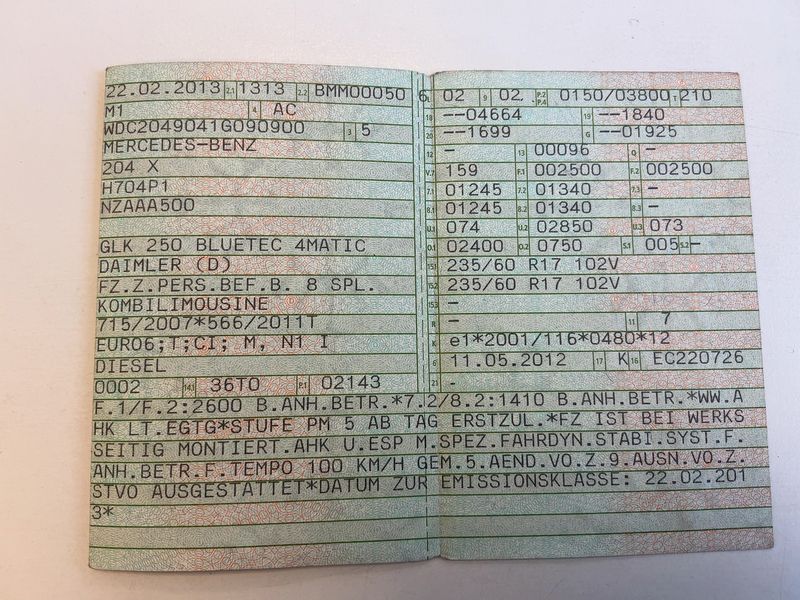 22.02.2013 2.1 1313 2.2 BMM00050 6
M1 4 AC
WDC2049041G090900 3 5
MERCEDES-BENZ
204 X
H704P1
NZAAA500
GLK 250 BLUETEC 4MATIC
DAIMLER (D)
FZ.Z.PERS.BEF.B. 8 SPL.
KOMBILIMOUSINE
715/2007*566/2011T
EURO6;T;CI; M, N1 I
DIESEL
0002 14.1 36TO P.1 02143
L 02 9 02, P.2 P.4 0150/03800 T 210
18 --04664 19 --1840
20 --1699 G --01925
12 - 13 00096 Q -
V.7 159 F.1 002500 F.2 002500
7.1 01245 7.2 01340 7.3 -
8.1 01245 8.2 01340 8.3 -
U.1 074 U.2 02850 U.3 073
O.1 02400 O.2 0750 S.1 005 S.2 -
15.1 235/60 R17 102V
15.2 235/60 R17 102V
15.3 -
R - 11 7
K e1*2001/116*0480*12
6 11.05.2012 17 K 16 EC220726
21 -
F.1/F.2:2600 B.ANH.BETR.*7.2/8.2:1410 B.ANH.BETR.*WW.A
HK LT.EGTG*STUFE PM 5 AB TAG ERSTZUL.*FZ IST BEI WERKS
SEITIG MONTIERT.AHK U.ESP M.SPEZ.FAHRDYN.STABI.SYST.F.
ANH.BETR.F.TEMPO 100 KM/H GEM.5.AEND.VO.Z.9.AUSN.VO.Z.
STVO AUSGESTATTET*DATUM ZUR EMISSIONSKLASSE: 22.02.201
3*